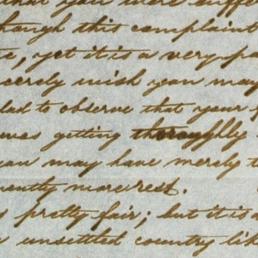 that you were suffe
though this complaint
ic, yet it is a very pa
cerely wish you may
led to observe that your
was getting thoroughly
can may have merely t
nently more rest.
s pretty fair; but it is a
unsettled country lik